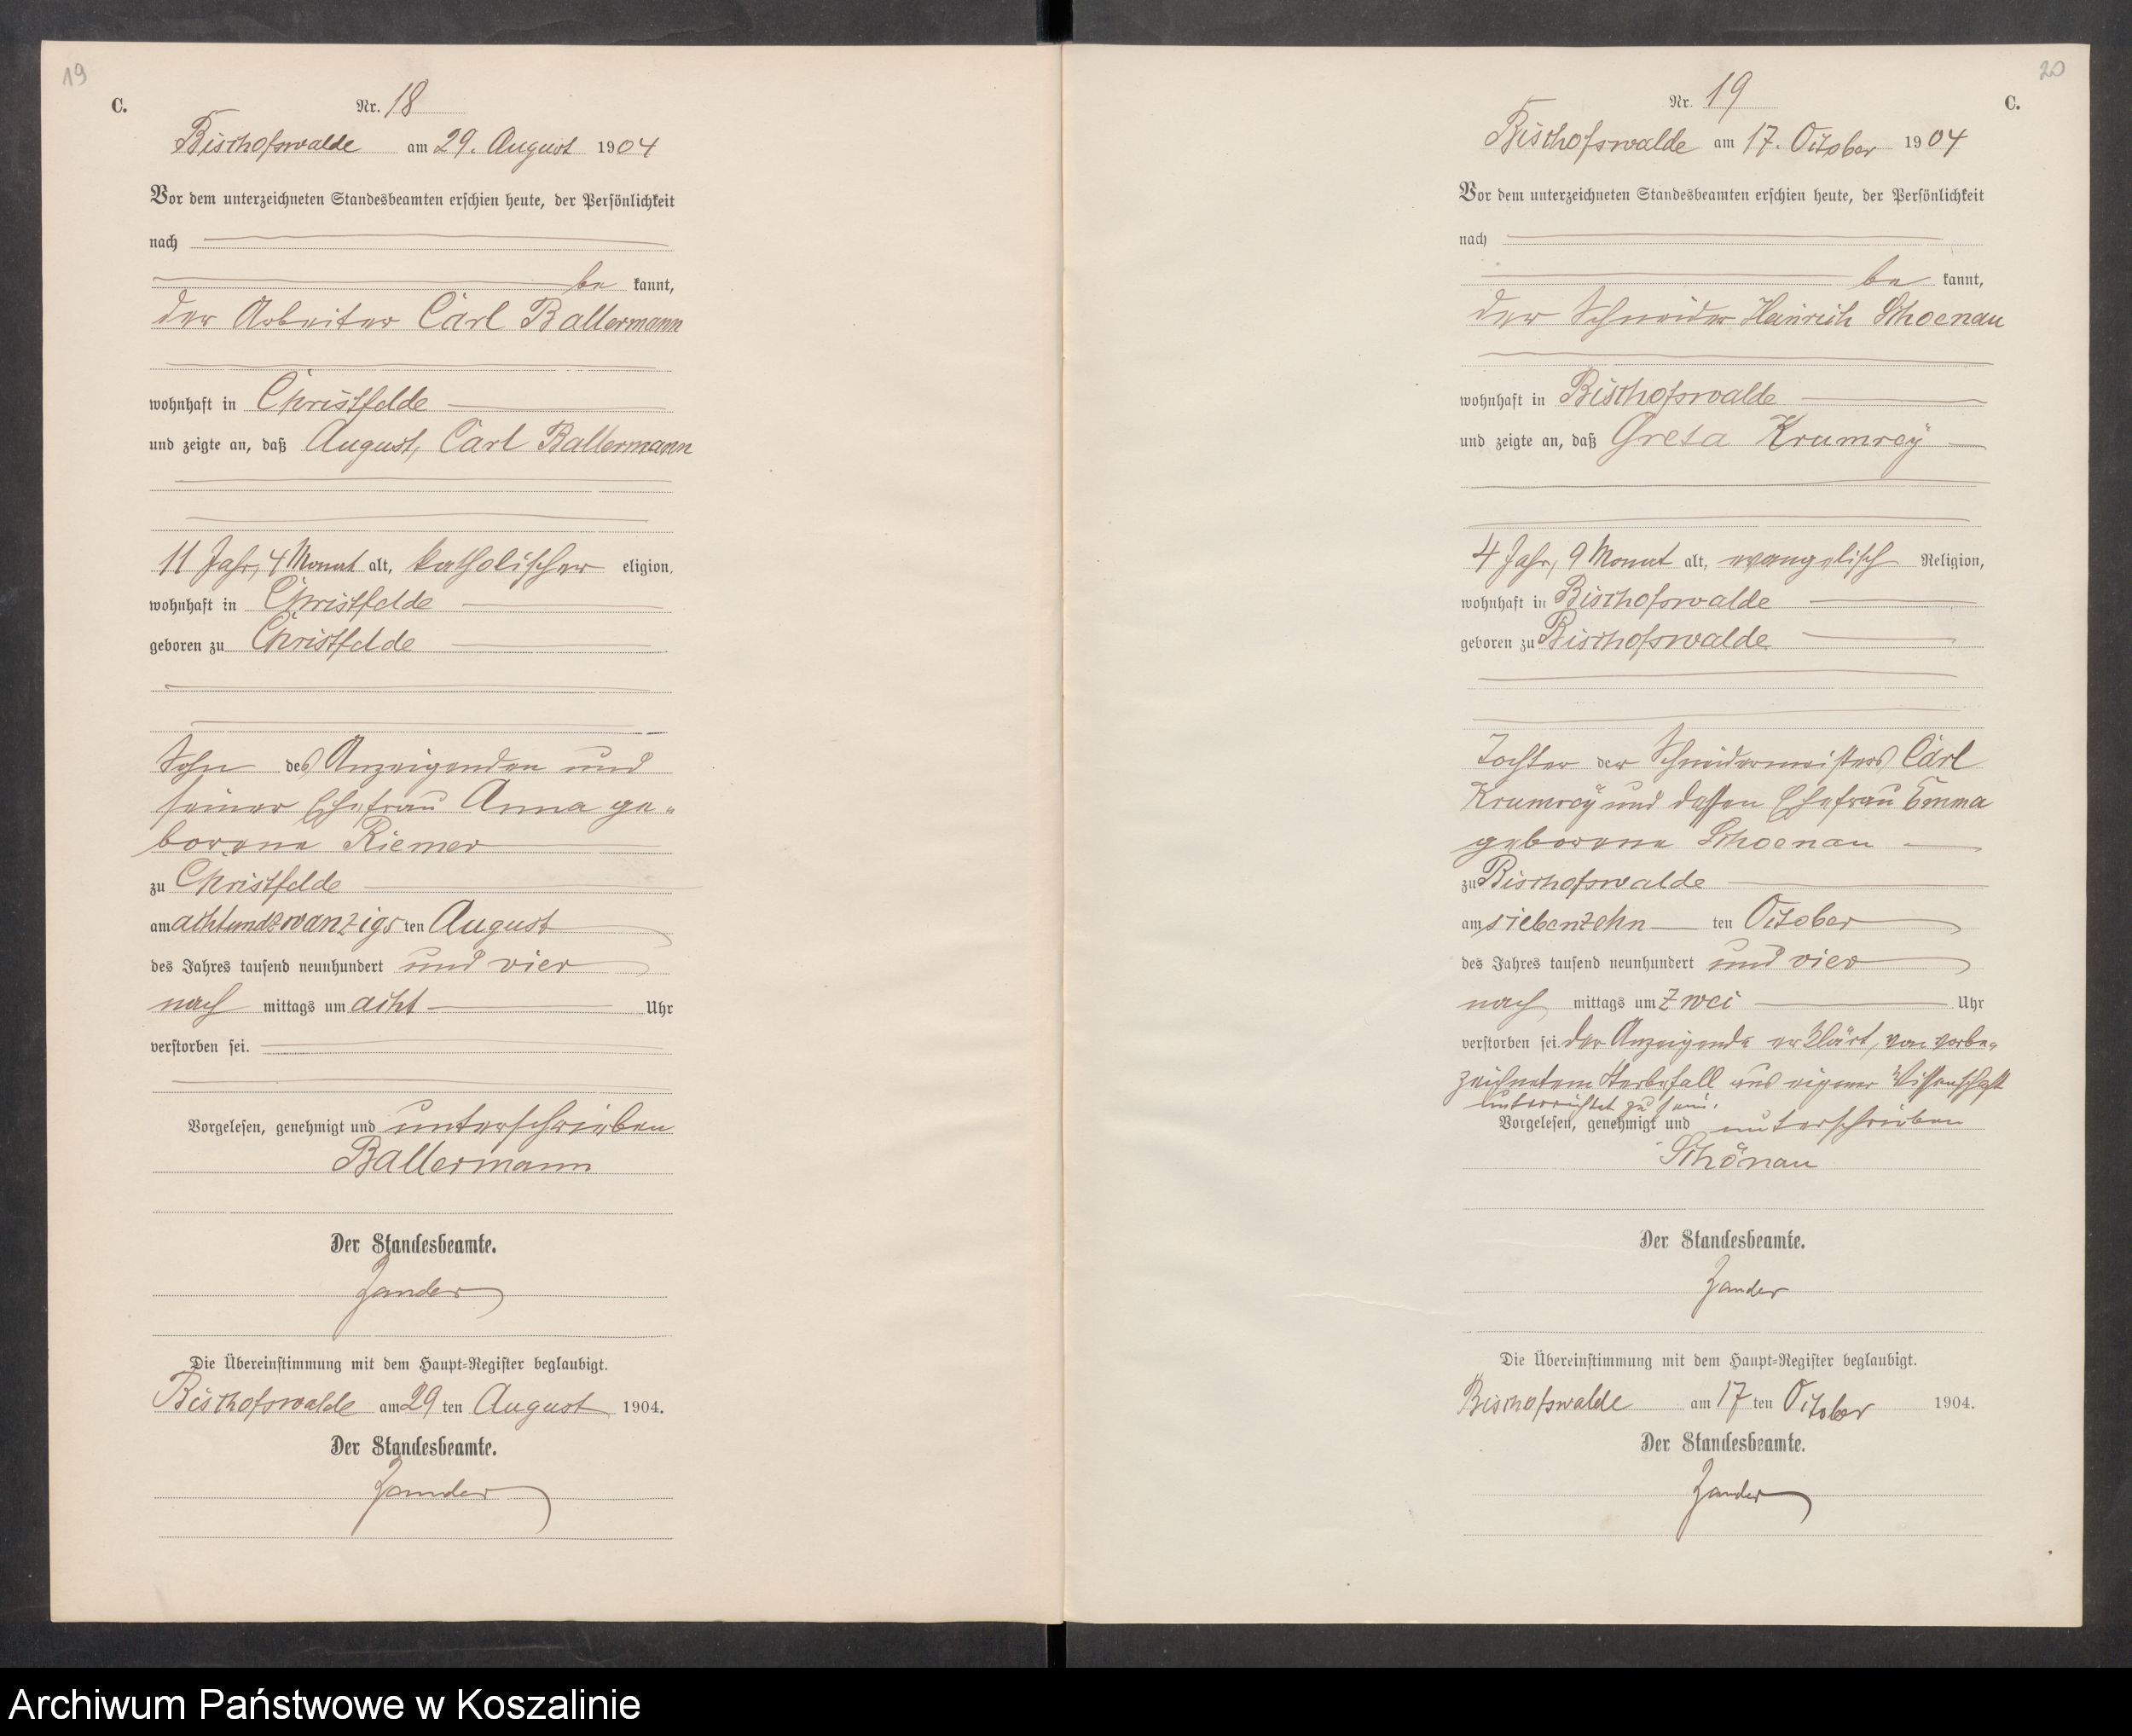 19
C.
Nr. 18
Bischofswalde am 29. August 1904
Vor dem unterzeichneten Standesbeamten erschien heute, der Persönlichkeit
nach
be kannt,
der Arbeiter Carl Ballermann
wohnhaft in Christfelde
und zeigte an, daß August, Carl Ballermann
11 Jahr, 4 Monat alt, katholischer eligion,
wohnhaft in Christfelde
geboren zu Christfelde
Sohn des Anzeigenden und
seiner Ehefrau Anna ge-
borene Riemer
zu Christfelde
am achtundzwanzigs ten August
des Jahres tausend neunhundert und vier
nach mittags um acht Uhr
verstorben sei.
Vorgelesen, genehmigt und unterschrieben
Ballermann
Der Standesbeamte.
Zander
Die Übereinstimmung mit dem Haupt-Register beglaubigt.
Bischofswalde am 29 ten August 1904.
Der Standesbeamte.
Zander
20
C.
Nr. 19
Bischofswalde am 17. October 1904
Vor dem unterzeichneten Standesbeamten erschien heute, der Persönlichkeit
nach
be kannt,
der Schneider Heinrich Schoenau
wohnhaft in Bischofswalde
und zeigte an, daß Greta Krumrey
4 Jahr, 9 Monat alt, evangelisch Religion,
wohnhaft in Bischofswalde
geboren zu Bischofswalde
Tochter der Schneidermeisters Carl
Krumrey und dessen Ehefrau Emma
geborene Schoenau
zu Bischofswalde
am siebenzehn ten October
des Jahres tausend neunhundert und vier
nach mittags um zwei Uhr
verstorben sei. Der Anzeigende erklärt, von vorbe-
zeichnetem Sterbefall aus eigener Wissenschaft
unterrichtet zu sein.
Vorgelesen, genehmigt und unterschrieben
Schönau
Der Standesbeamte.
Zander
Die Übereinstimmung mit dem Haupt-Register beglaubigt.
Bischofswalde am 17 ten October 1904.
Der Standesbeamte.
Zander
Archiwum Państwowe w Koszalinie